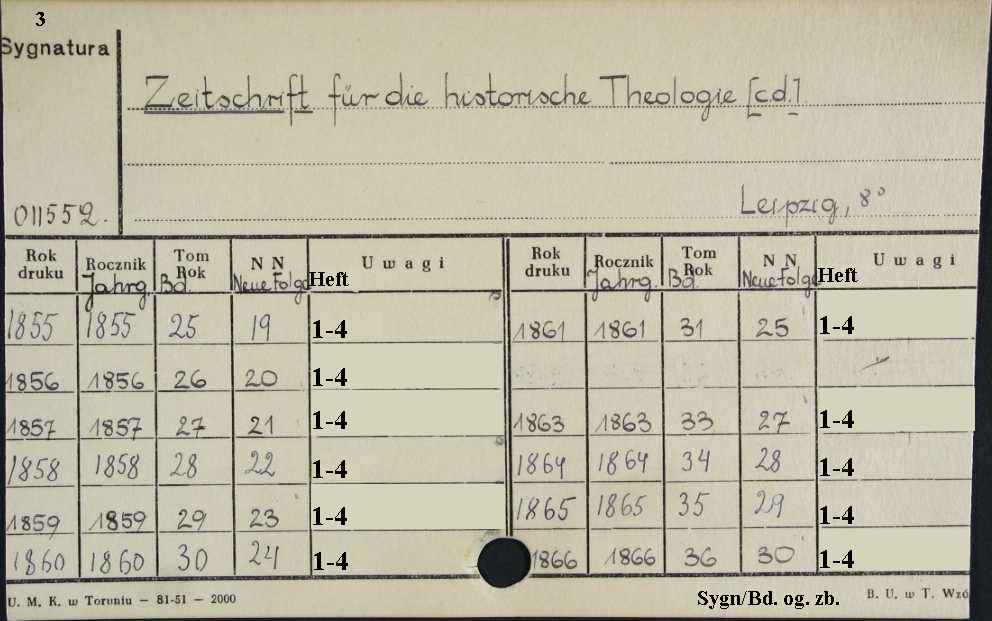 3
Sygnatura
Zeitschrift für die historische Theologie [c.d.]
011552.
Leipzig, 8°
Rok druku Rocznik Jahrg. Tom Rok Bd. N N Neue Folge Heft U w a g i Rok druku Rocznik Jahrg. Tom Rok Bd. N N Neue Folge Heft U w a g i
1855 1855 25 19 1-4 1861 1861 31 25 1-4
1856 1856 26 20 1-4
1857 1857 27 21 1-4 1863 1863 33 27 1-4
1858 1858 28 22 1-4 1864 1864 34 28 1-4
1859 1859 29 23 1-4 1865 1865 35 29 1-4
1860 1860 30 24 1-4 1866 1866 36 30 1-4
U. M. K. w Toruniu — 81-51 — 2000 Sygn/Bd. og. zb. B. U. w T. Wzó